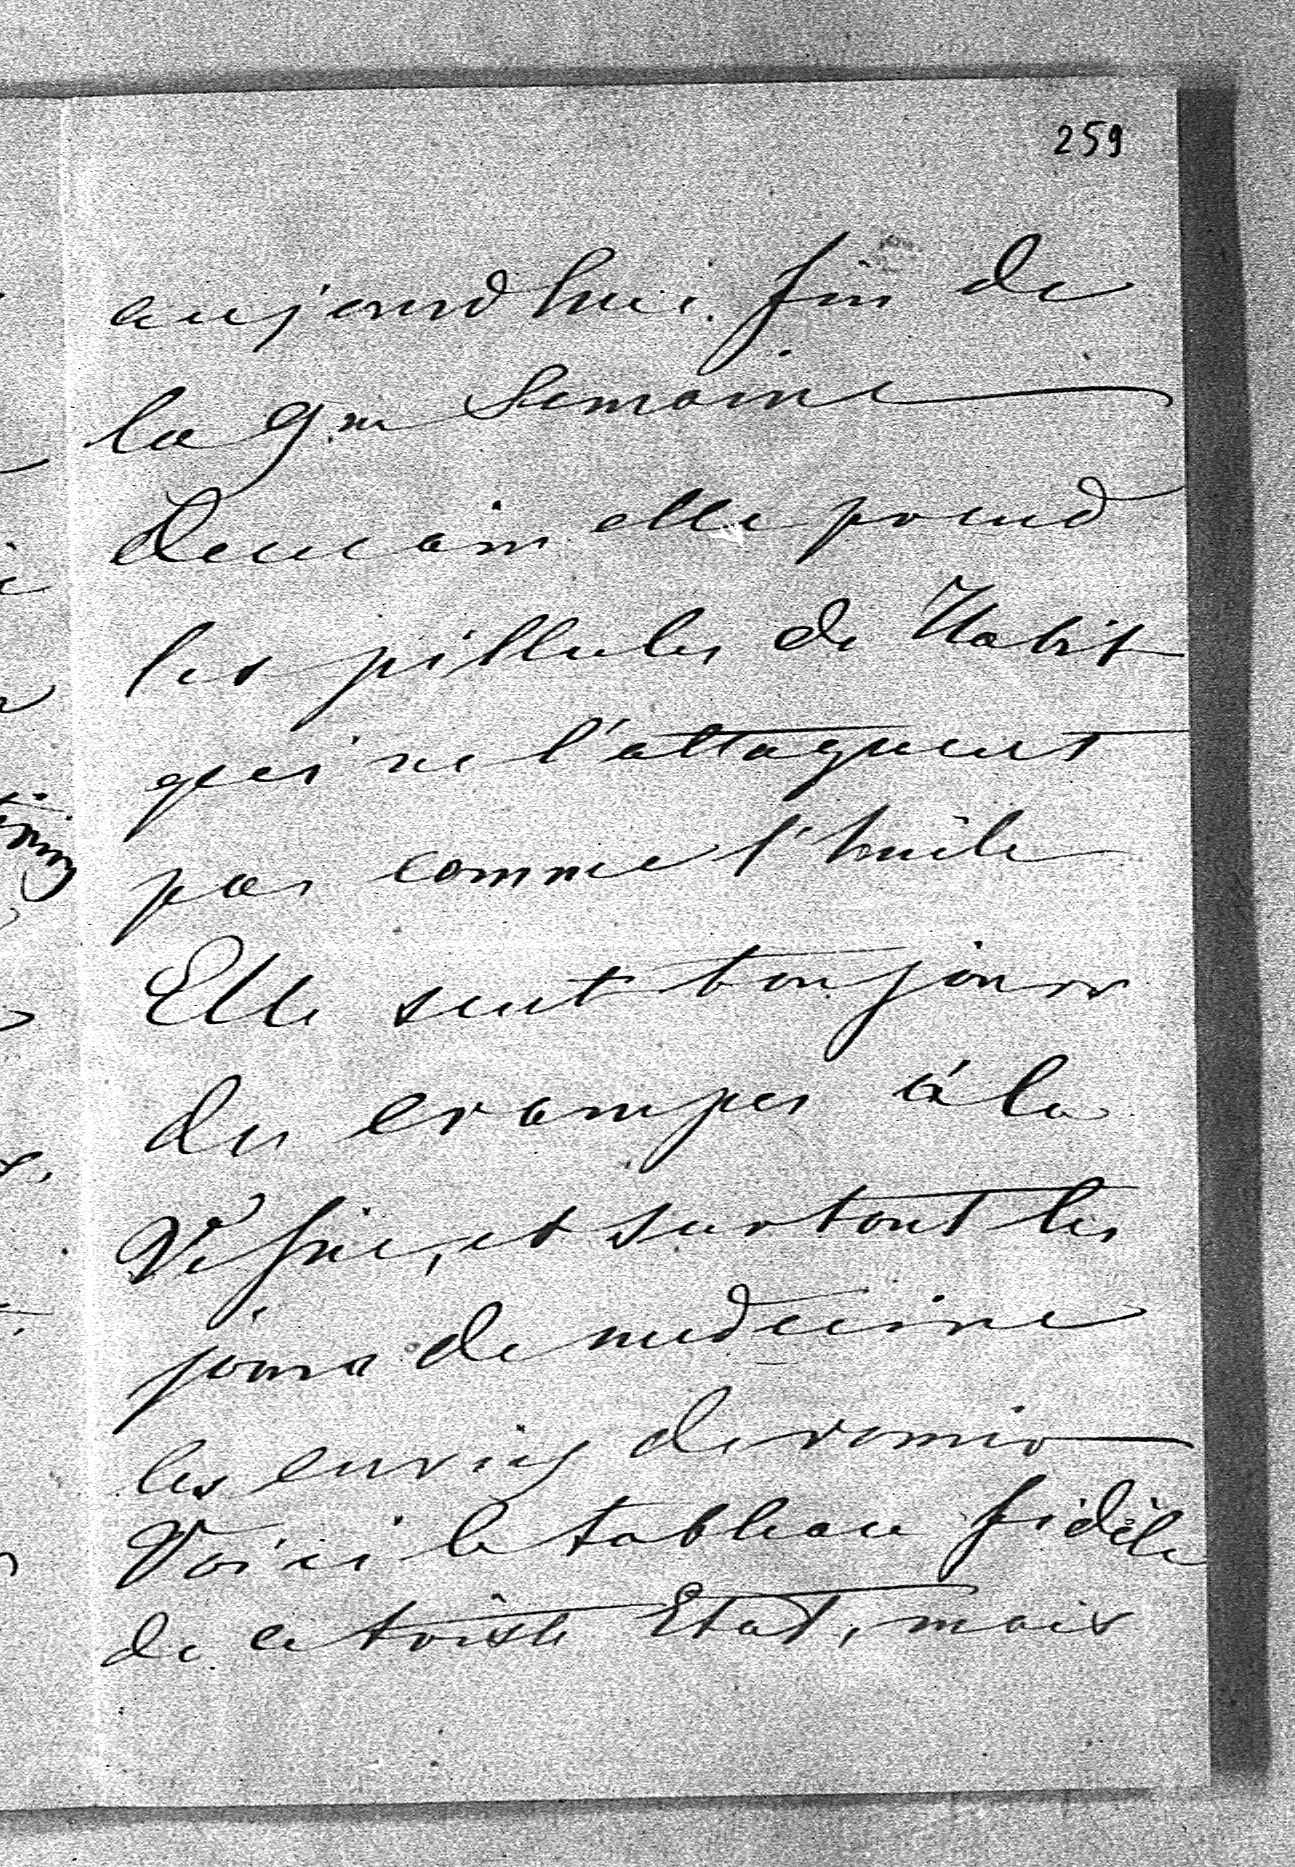 259
aujourdhui fin de
la 9me Semaine
Demain elle prend
les pillules de
qui ne l'attaquent
pas comme l'huile
Elle sent toujours
des crampes à la
Vessie, et surtout les
jours de medecine
les envies de vomir
Voici le tableau fidèle
de ce triste Etat, mais